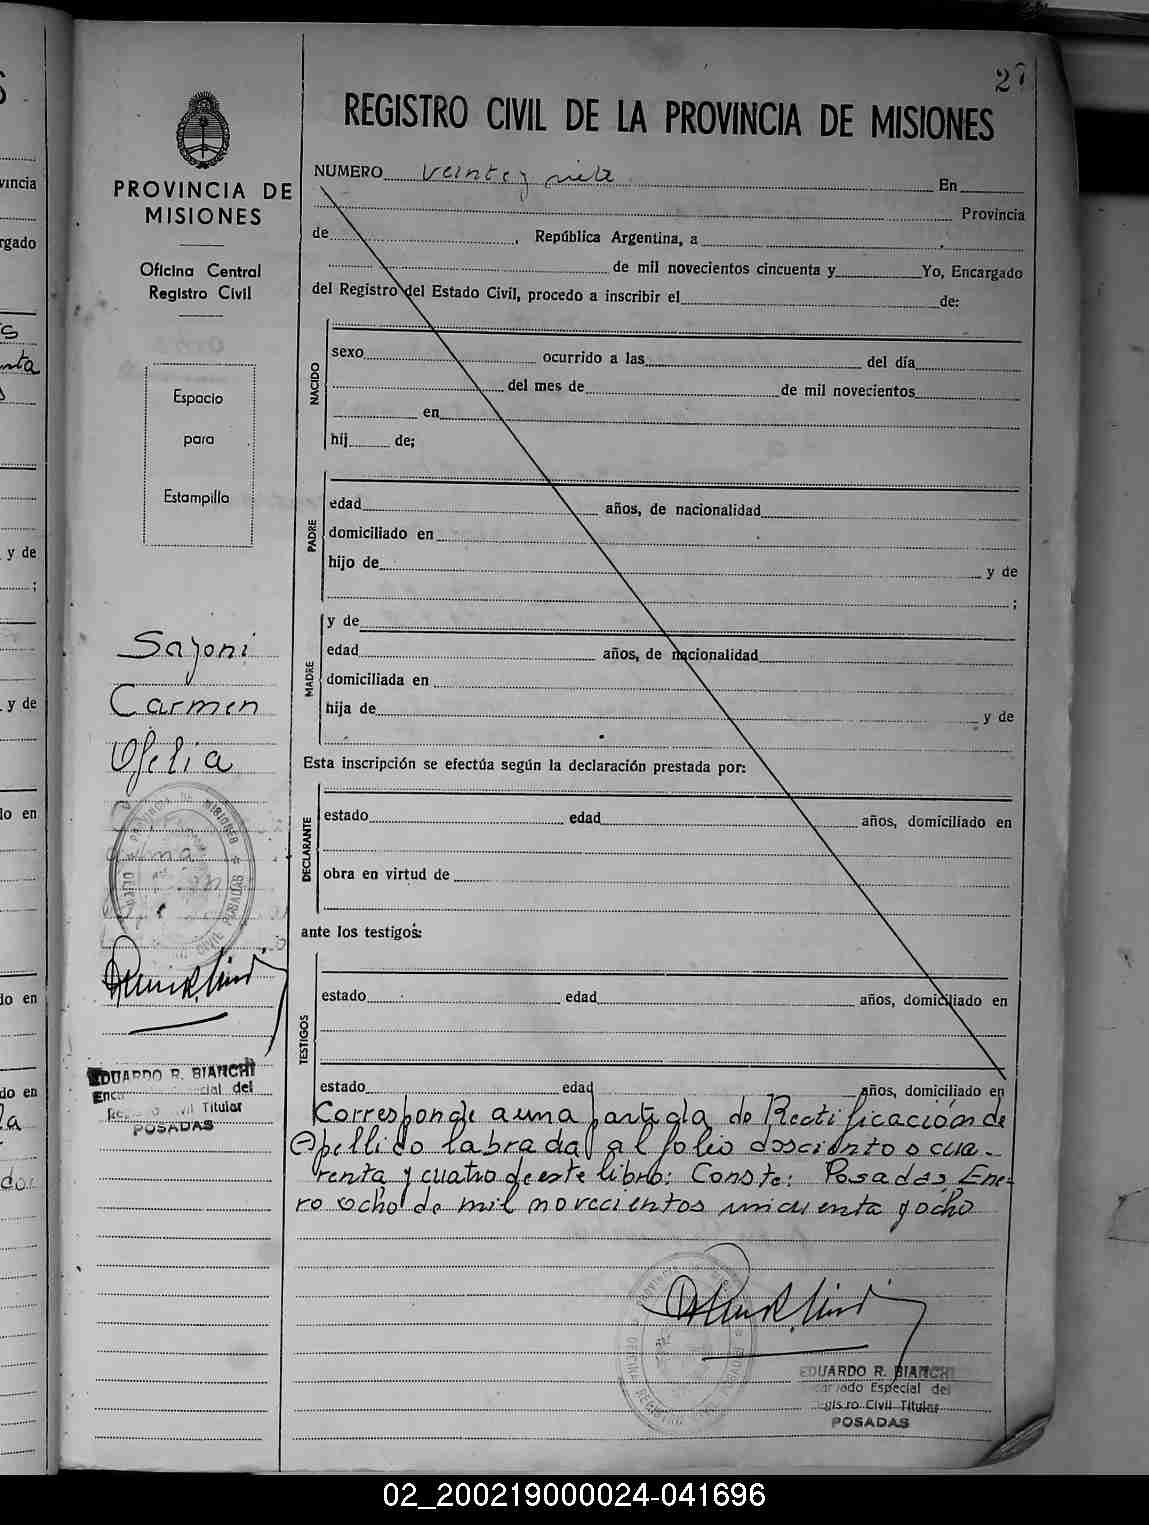 27
REGISTRO CIVIL DE LA PROVINCIA DE MISIONES
PROVINCIA DE
MISIONES
Oficina Central
Registro Civil
Espacio
para
Estampilla
Sajoni
Carmen
Ofelia
EDUARDO R. BIANCHI
Especial del
Registro Civil Titular
POSADAS
NUMERO veinte y siete En
Provincia
de , República Argentina, a
de mil novecientos cincuenta y Yo, Encargado
del Registro del Estado Civil, procedo a inscribir el de:
NACIDO
sexo ocurrido a las del día
del mes de de mil novecientos
en
hij de;
PADRE
edad años, de nacionalidad
domiciliado en
hijo de y de
;
MADRE
y de
edad años, de nacionalidad
domiciliada en
hija de y de
Esta inscripción se efectúa según la declaración prestada por:
DECLARANTE
estado edad años, domiciliado en
obra en virtud de
ante los testigos:
TESTIGOS
estado edad años, domiciliado en
estado edad años, domiciliado en
Corresponde a una partida de Rectificación de
Apellido labrada al folio doscientos cua-
renta y cuatro de este libro; Conste: Posadas, Ene-
ro ocho de mil novecientos cincuenta y ocho
EDUARDO R. BIANCHI
Encargado Especial del
Registro Civil Titular
POSADAS
vincia
rgado
y de
;
y de
lo en
do en
do en
02_200219000024-041696